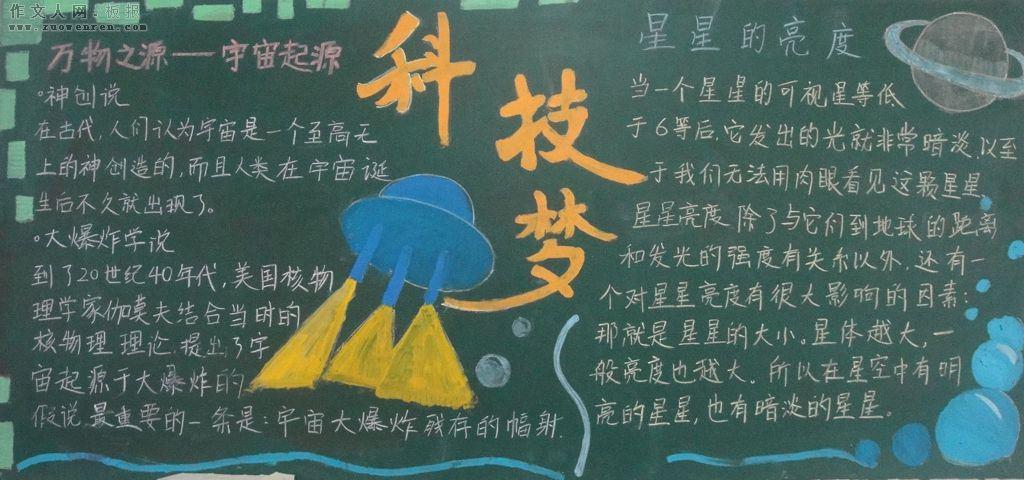 作文人网·板报
www.zuowenren.com
万物之源——宇宙起源
°神创说
在古代,人们认为宇宙是一个至高无
上的神创造的,而且人类在宇宙诞
生后不久就出现了。
°大爆炸学说
到了20世纪40年代,美国核物
理学家伽莫夫结合当时的
核物理理论,提出了宇
宙起源于大爆炸的
假说,最重要的一条是:宇宙大爆炸残存的幅射.
科
技
梦
星星的亮度
当一个星星的可视星等低
于6等后,它发出的光就非常暗淡,以至
于我们无法用肉眼看见这颗星星.
星星亮度除了与它们到地球的距离
和发光的强度有关系以外,还有一
个对星星亮度有很大影响的因素:
那就是星星的大小。星体越大,一
般亮度也越大。所以在星空中有明
亮的星星,也有暗淡的星星。